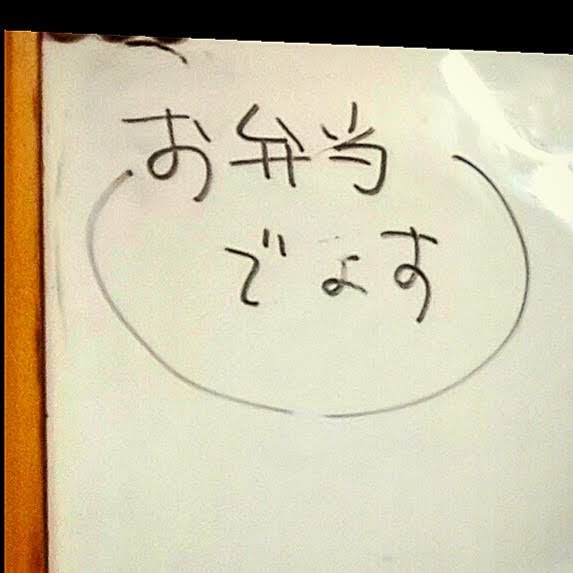 お弁当
でよす